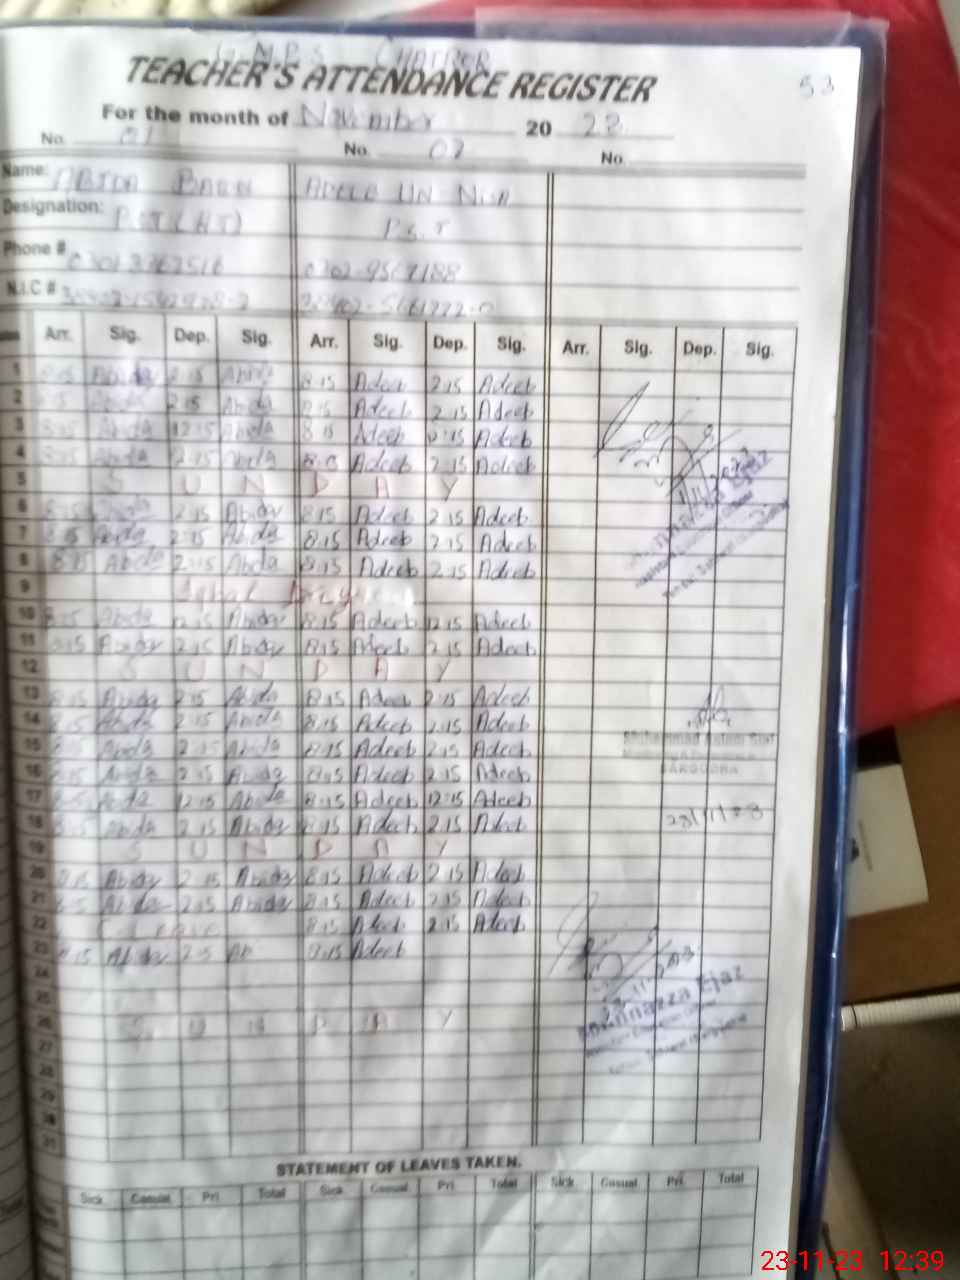 G.M.P.S CHATROR
TEACHER'S ATTENDANCE REGISTER
53
For the month of November 20 23
No. 01 No. 02 No.
Name: ABIDA BANO ADEEB UN NISA
Designation: P.S.T (H.T) P.S.T
Phone # 0302-9567188
N.I.C #
Arr. Sig. Dep. Sig. Arr. Sig. Dep. Sig. Arr. Sig. Dep. Sig.
1 8:15 Abida 2:15 Abida 8:15 Adeeb 2:15 Adeeb
2 8:15 Abida 2:15 Abida 8:15 Adeeb 2:15 Adeeb
3 8:15 Abida 12:15 Abida 8:15 Adeeb 12:15 Adeeb
4 8:15 Abida 2:15 Abida 8:15 Adeeb 2:15 Adeeb
5 S U N D A Y
6 8:15 Abida 2:15 Abida 8:15 Adeeb 2:15 Adeeb
7 8:15 Abida 2:15 Abida 8:15 Adeeb 2:15 Adeeb
8 8:15 Abida 2:15 Abida 8:15 Adeeb 2:15 Adeeb
9 Iqbal Day
10 8:15 Abida 12:15 Abida 8:15 Adeeb 12:15 Adeeb
11 8:15 Abida 2:15 Abida 8:15 Adeeb 2:15 Adeeb
12 S U N D A Y
13 8:15 Abida 2:15 Abida 8:15 Adeeb 2:15 Adeeb
14 8:15 Abida 2:15 Abida 8:15 Adeeb 2:15 Adeeb
15 8:15 Abida 2:15 Abida 8:15 Adeeb 2:15 Adeeb
SARGODHA
16 8:15 Abida 2:15 Abida 8:15 Adeeb 2:15 Adeeb
17 8:15 Abida 12:15 Abida 8:15 Adeeb 12:15 Adeeb
18 8:15 Abida 2:15 Abida 8:15 Adeeb 2:15 Adeeb
19 S U N D A Y
20 8:15 Abida 2:15 Abida 8:15 Adeeb 2:15 Adeeb
21 8:15 Abida 2:15 Abida 8:15 Adeeb 2:15 Adeeb
22 C. Leave 8:15 Adeeb 2:15 Adeeb
23 8:15 Abida 2:15 Ab 8:15 Adeeb
24
25
26 S U N D A Y
27
28
29
30
31
STATEMENT OF LEAVES TAKEN.
Sick Casual Pri. Total Sick Casual Pri. Total Sick Casual Pri. Total
23-11-23 12:39